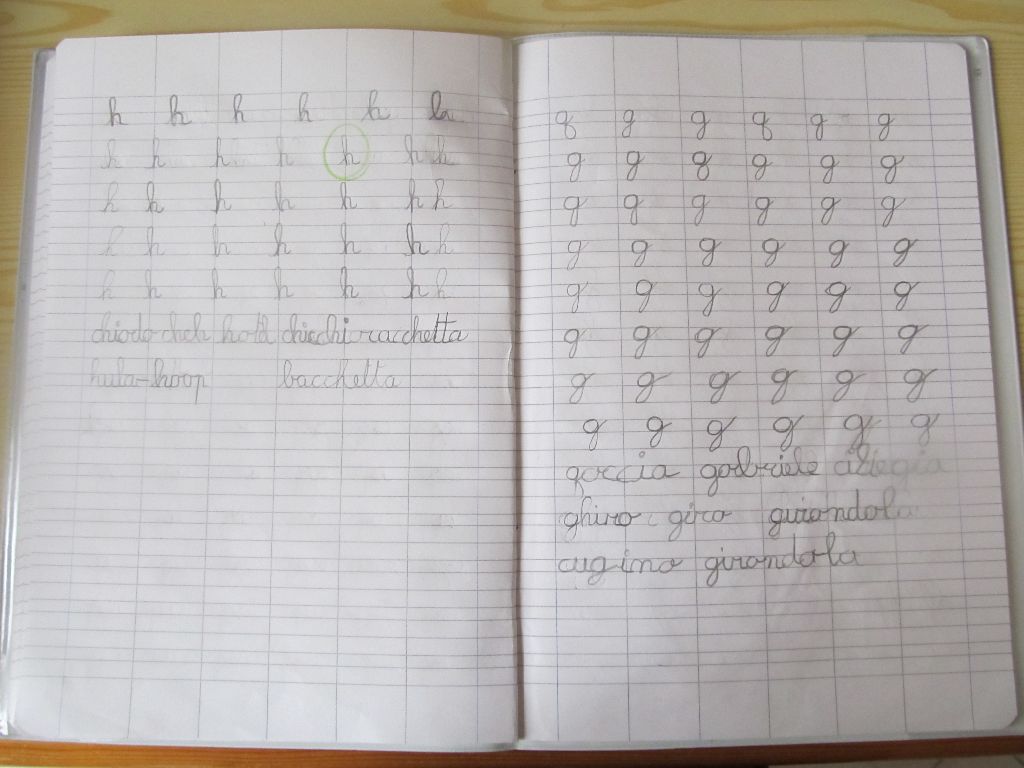 h h h h h h
h h h h h h h
h h h h h h h
h h h h h h h
h h h h h h h
chiodo chicchi racchetta
hula-hoop bacchetta
g g g g g g
g g g g g g
g g g g g g
g g g g g g
g g g g g g
g g g g g g
g g g g g g
g g g g g g
goccia gabriele
ghiro giro girandola
cugino girandola